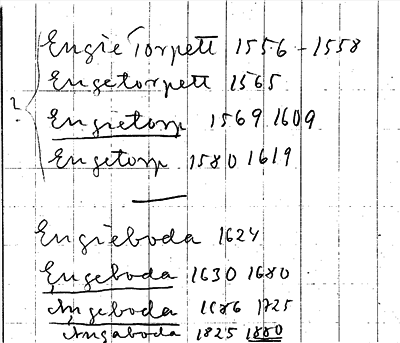 ? Engie Torpett 1556-1558
Engetorpett 1565
Engietorp 1569 1609
Engetorp 1580 1619
Engieboda 1624
Engeboda 1630 1680
Ängeboda 1686 1725
Ängaboda 1825 1880